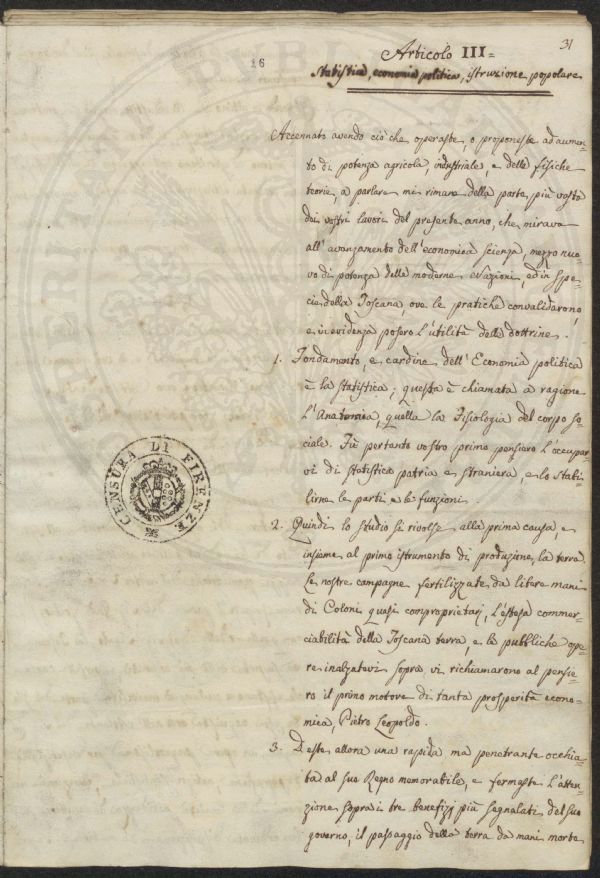 31
16
Articolo III =
Statistica, economia politica, istruzione popolare
Accennato avendo ciò che operaste, o proponeste ad aumen=
to di potenza agricola, industriale, e delle fisiche
teorie, a parlare mi rimane della parte più vasta
dei vostri lavori del presente anno, che mirava
all'avanzamento dell'economica scienza, mezzo nuo=
vo di potenza delle moderne Nazioni, ed in ispe=
cie della Toscana, ove le pratiche convalidarono,
e in evidenza posero l'utilità delle dottrine.
1. Fondamento, e cardine dell'Economia politica
è la statistica; questa è chiamata a ragione
l'Anatomia, quella la Fisiologia del corpo so=
ciale. Fù pertanto vostro primo pensiero l'occupar=
vi di statistica patria e straniera, e lo stabi=
lirne le parti e le funzioni.
CENSURA DI FIRENZE
2. Quindi lo studio si rivolse alla prima causa, e
insieme al primo istrumento di produzione, la terra.
Le nostre campagne fertilizzate da libere mani
di Coloni quasi comproprietarj, l'estesa commer=
ciabilità della Toscana terra, e le pubbliche ope=
re inalzatevi sopra vi richiamarono al pensie=
ro il primo motore di tanta prosperità econo=
mica, Pietro Leopoldo.
3. Deste allora una rapida ma penetrante occhia=
ta al suo Regno memorabile, e fermaste l'atten=
zione sopra i tre benefizj più segnalati del suo
governo, il passaggio della terra da mani morte